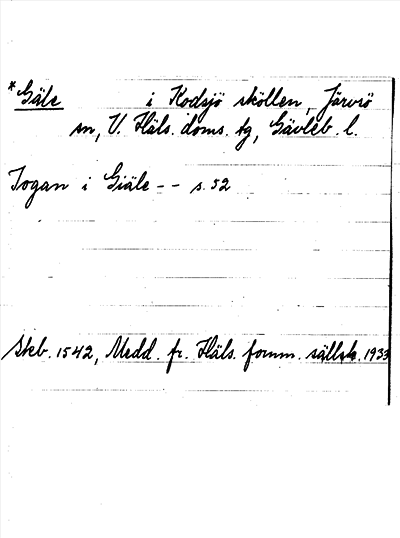 *Gäle i Kodsjö sköllen, Järvsö
sn, V. Häls. doms. tg, Gävleb. l.
Jogan i Giäle - - s. 52
Skb. 1542, Medd. fr. Häls. fornm. sällsk. 1933